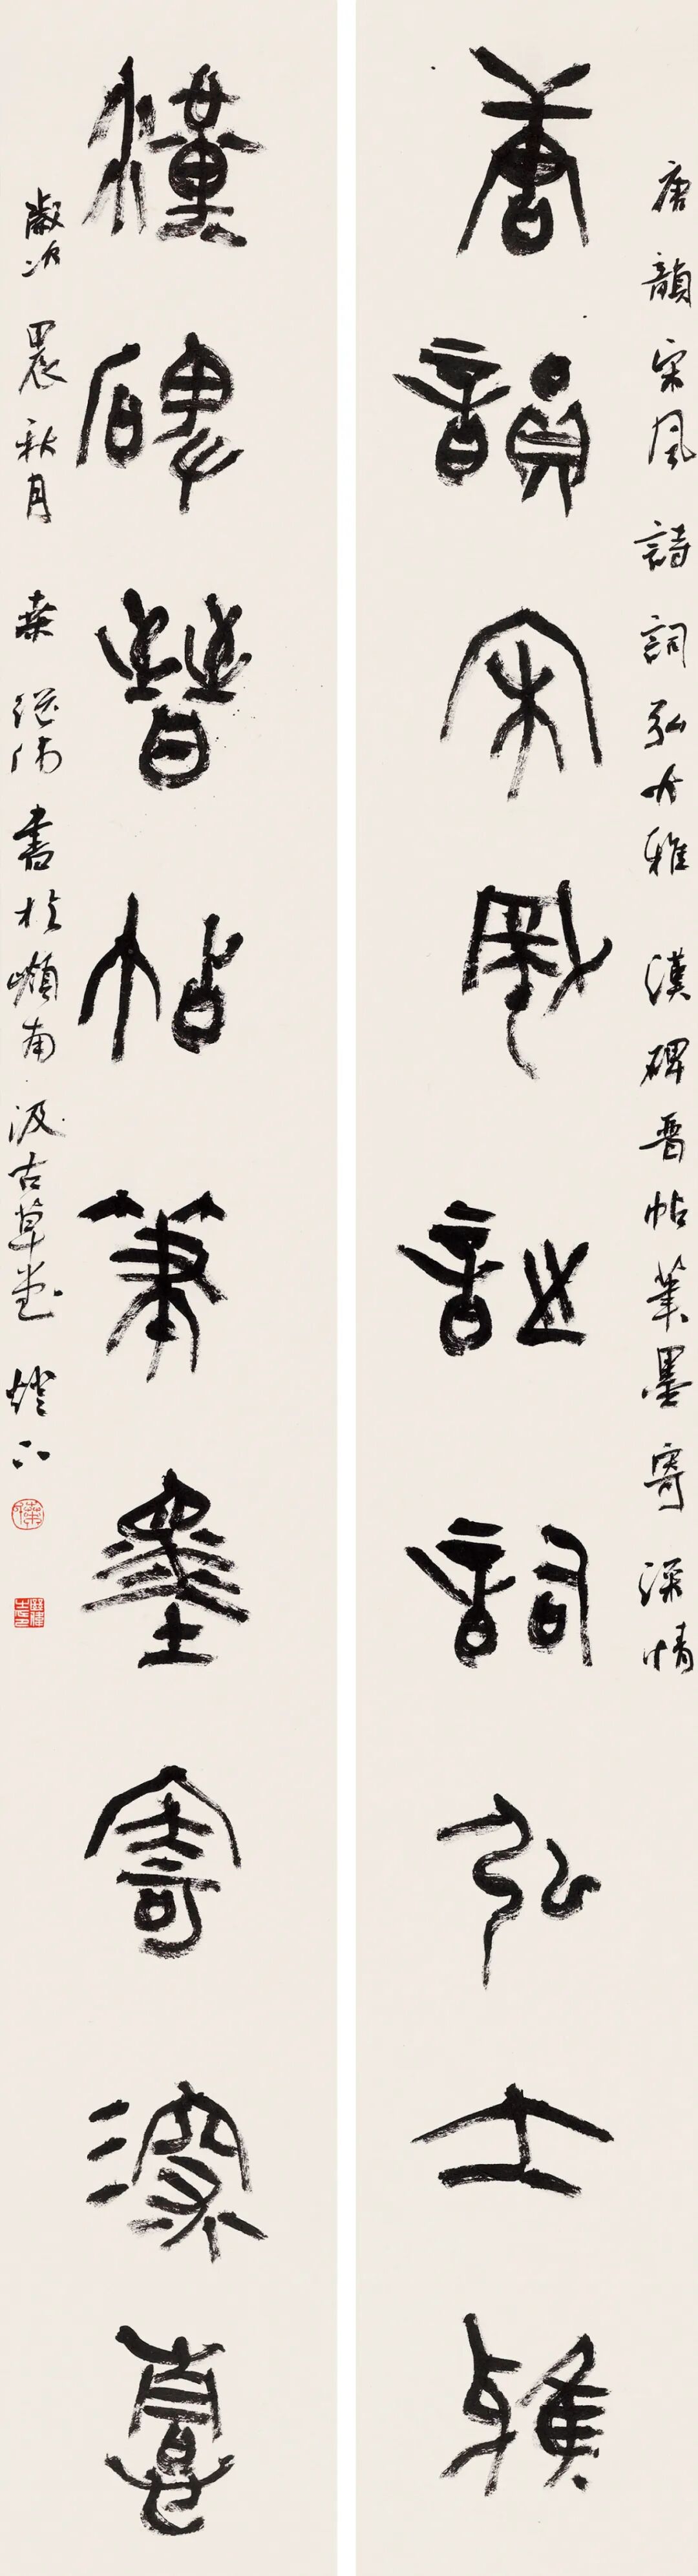 唐韻宋風詩詞弘大雅 漢碑晋帖筆墨寄深情
唐韻宋風詩詞弘大雅
漢碑晉帖筆墨寄深情
歲次甲辰秋月 書於嶺南汲古草堂燈下